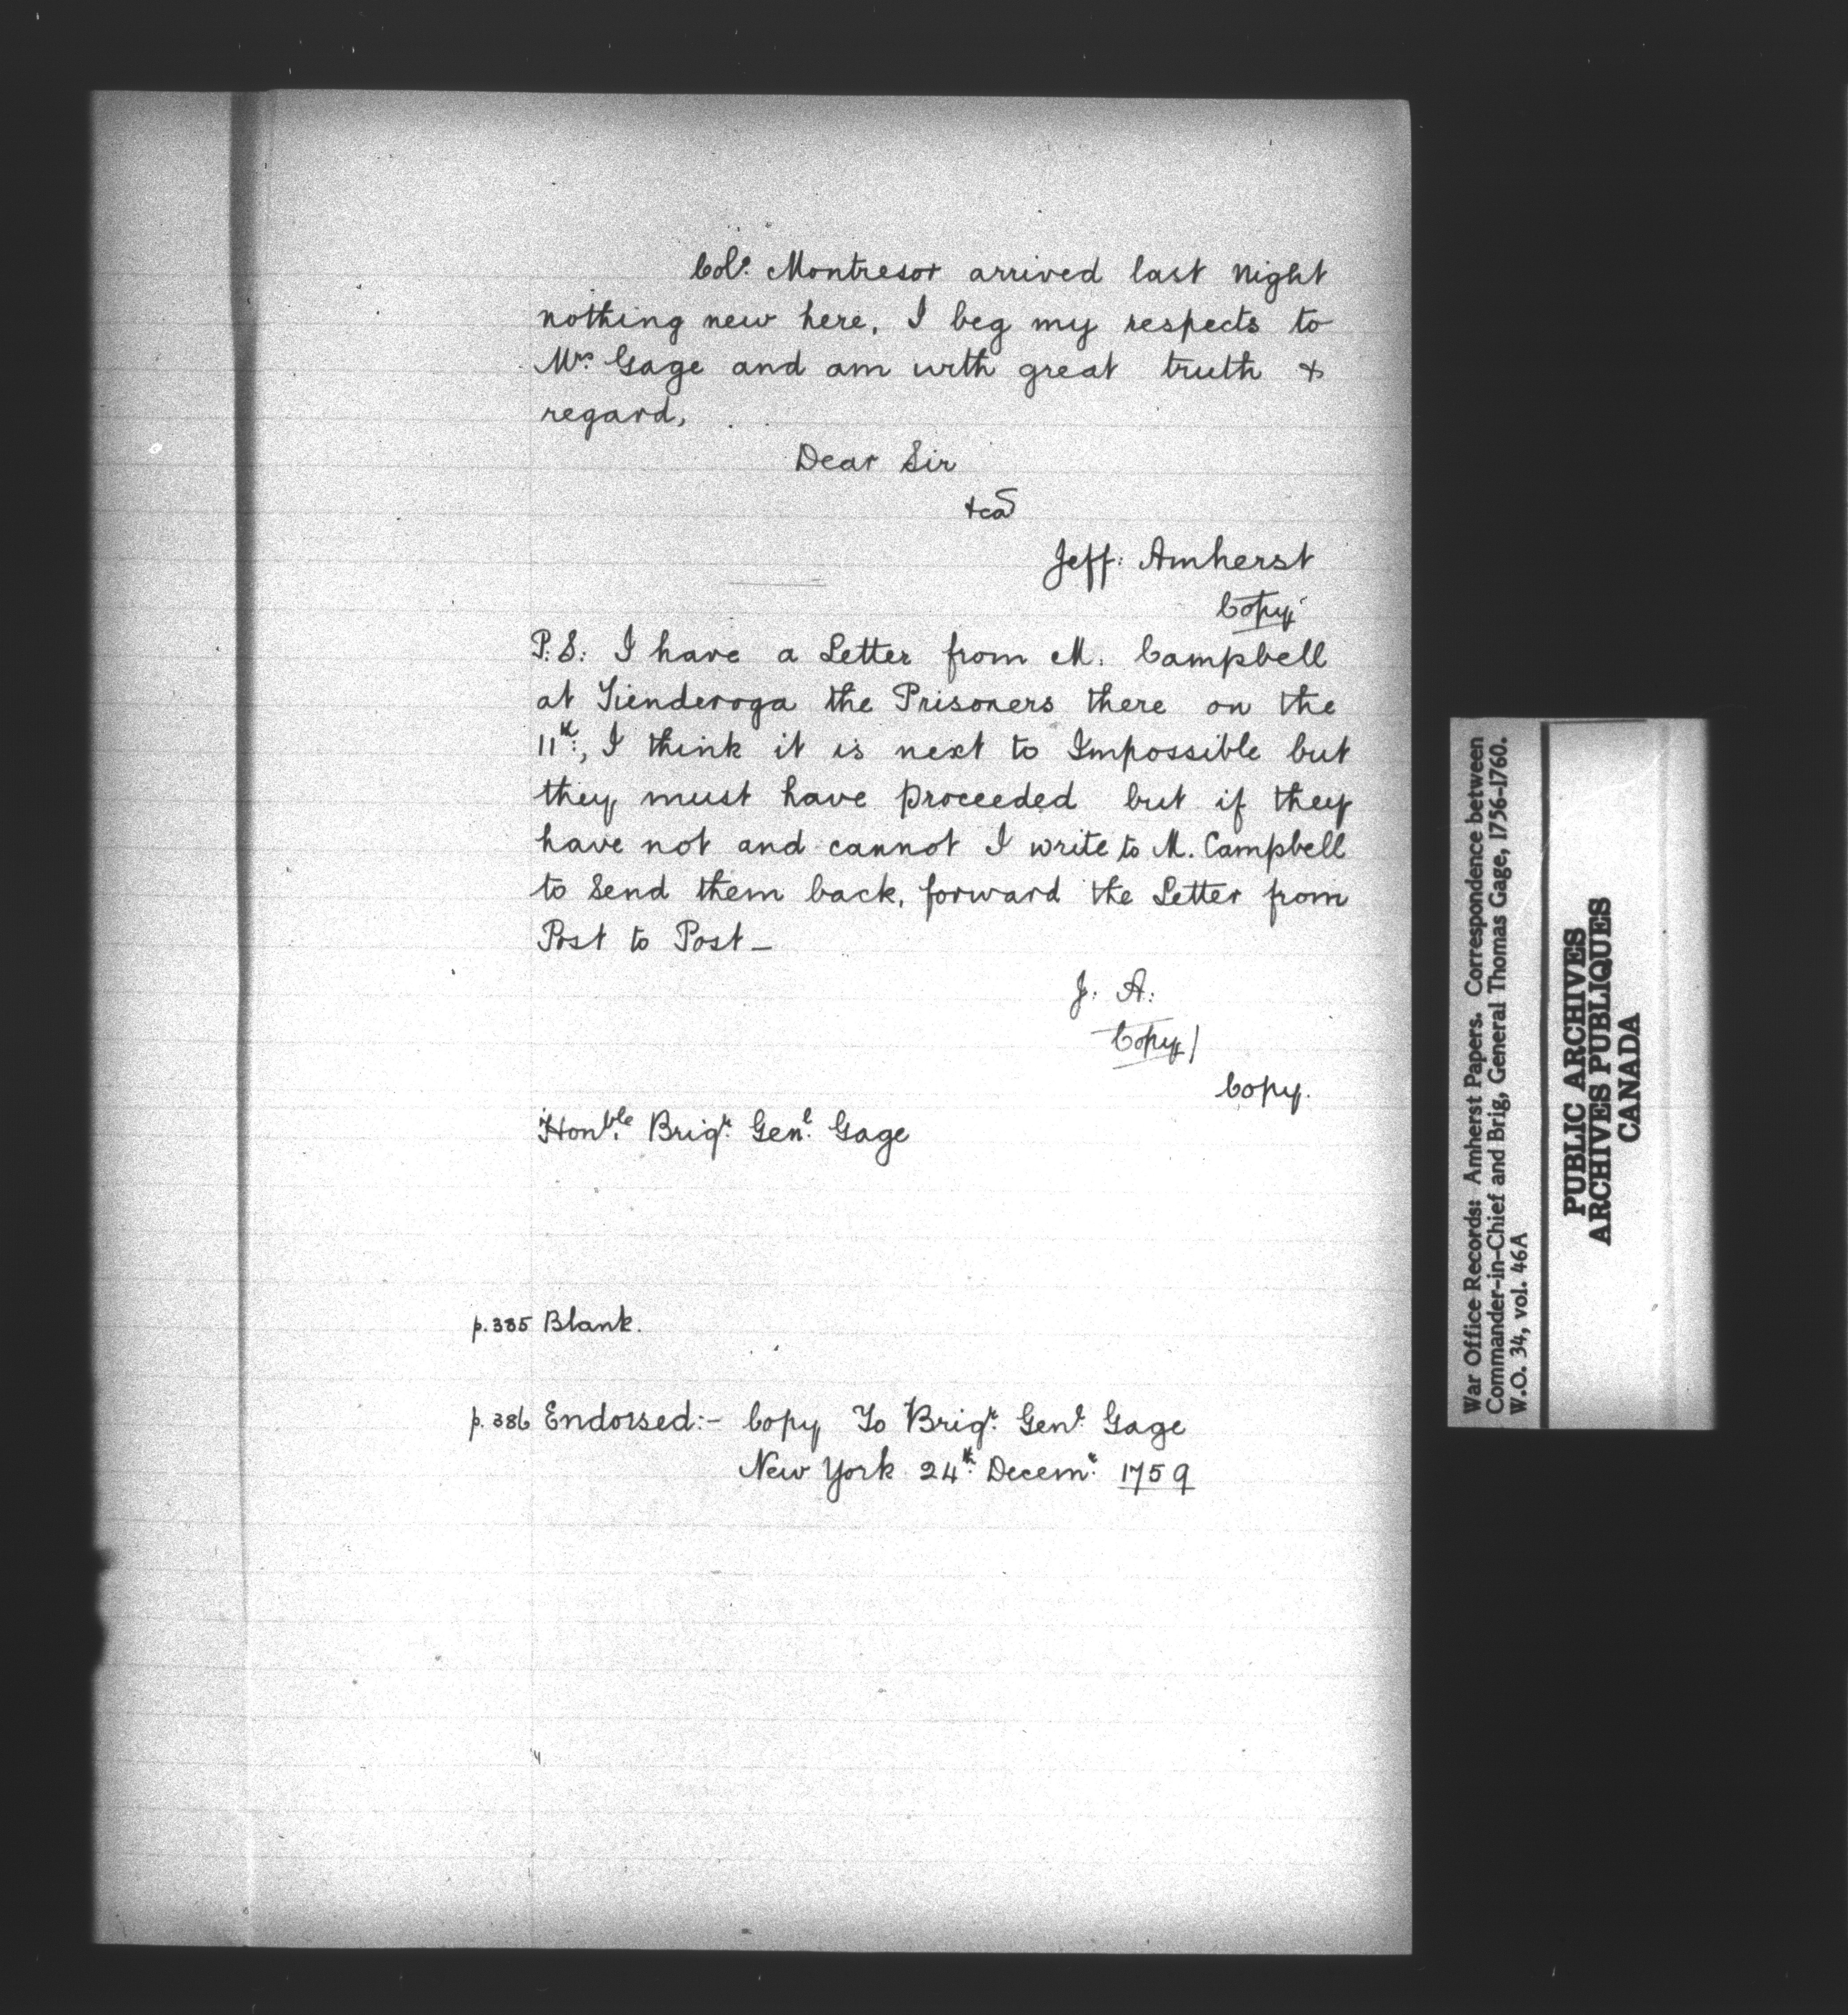 Colo. Montresor arrived last night
nothing new here, I beg my respects to
Mrs. Gage and am with great truth &
regard,
Dear Sir
&ca
Jeff: Amherst
Copy
P:S: I have a Letter from M. Campbell
at Tienderoga the Prisoners there on the
11th:, I think it is next to Impossible but
they must have proceeded but if they
have not and cannot I write to M. Campbell
to Send them back, forward the Letter from
Post to Post_
J: A:
Copy/
Copy.
Honble. Brigr. Genl. Gage
p.385 Blank.
p.386 Endorsed:- Copy To Brigr. Genl. Gage
New York 24th. Decemr. 1759
War Office Records: Amherst Papers. Correspondence between
Commander-in-Chief and Brig, General Thomas Gage, 1756-1760.
W.O. 34, vol. 46A
PUBLIC ARCHIVES
ARCHIVES PUBLIQUES
CANADA